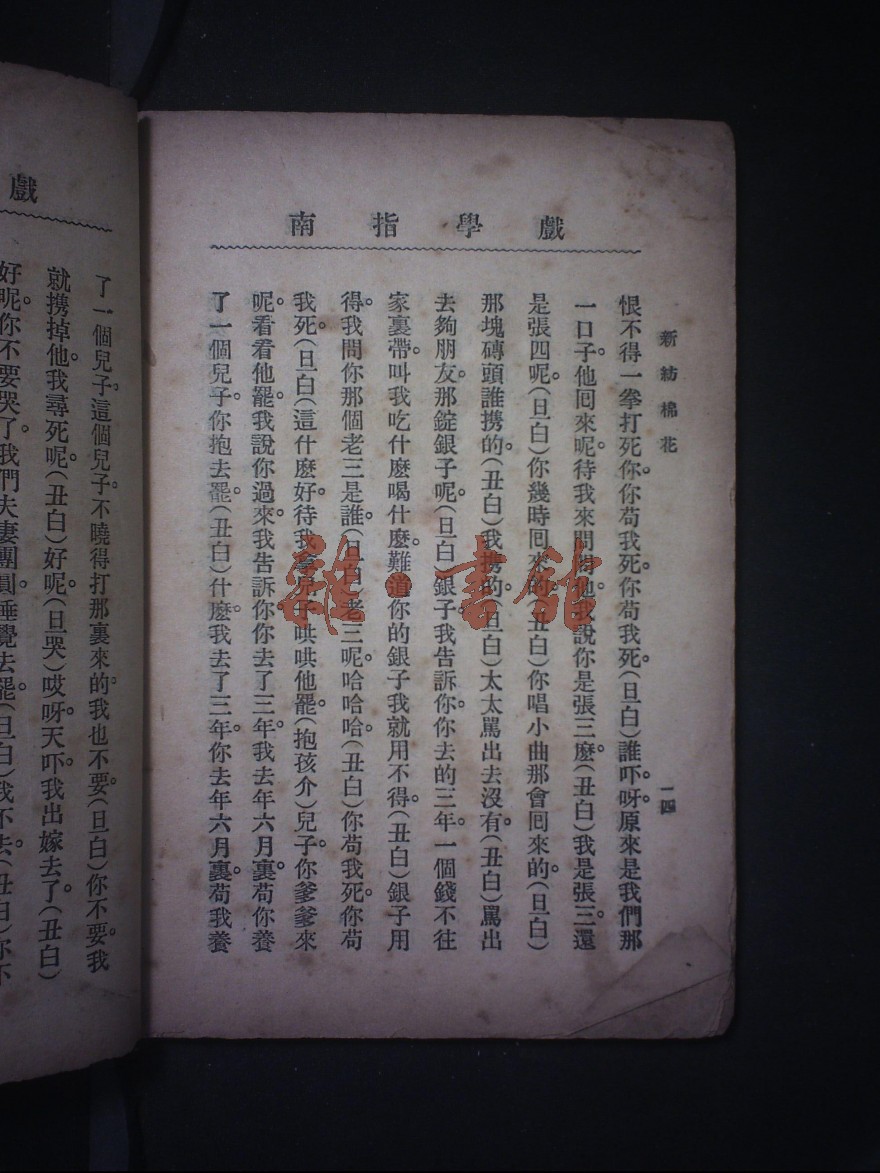 戲學指南
新紡棉花
一四
恨不得一拳打死你。你苟我死。你苟我死。(旦白)誰吓。呀。原來是我們那
一口子。他回來呢。待我來問問他。我說你是張三麽。(丑白)我是張三。還
是張四呢。(旦白)你幾時回來的。(丑白)你唱小曲那會回來的。(旦白)
那塊磚頭誰携的。(丑白)我携的。(旦白)太太駡出去沒有。(丑白)駡出
去夠朋友。那錠銀子呢。(旦白)銀子我告訴你。你去的三年。一個錢不往
家裏帶。叫我吃什麽喝什麽。難道你的銀子我就用不得。(丑白)銀子用
得。我問你那個老三是誰。(旦白)老三呢。哈哈哈。(丑白)你苟我死。你苟
我死。(旦白)這什麽好。待我拿兒子哄哄他罷。(抱孩介)兒子。你爹爹來
呢。看看他罷。我說你過來。我告訴你。你去了三年。我去年六月裏。苟你養
了一個兒子。你抱去罷。(丑白)什麽。我去了三年。你去年六月裏。苟我養
戲
了一個兒子。這個兒子。不曉得打那裏來的。我也不要。(旦白)你不要。我
就携掉他。我尋死呢。(丑白)好呢。(旦哭)哎呀天吓。我出嫁去了。(丑白)
好呢。你不要哭了。我們夫妻團圓。睡覺去罷。(旦白)我不去。(丑白)你不
雜·書館